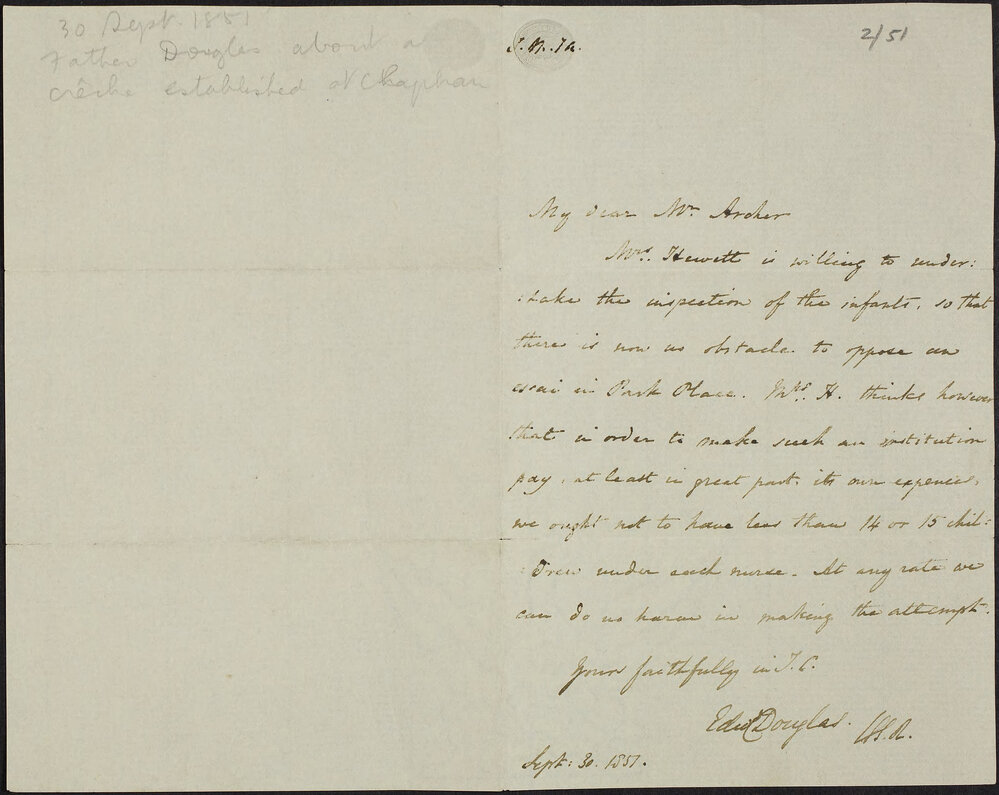 30 Sept. 1851
Father Douglas about a
crêche established at Clapham
2/51
J. M. J. A.
My dear Mr. Archer
Mrs. Hewett is willing to under:
:take the inspection of the infants, so that
there is now no obstacle to oppose an
essai in Park Place. Mrs. H. thinks however
that in order to make such an institution
pay, at least in great part, its own expences,
we ought not to have less than 14 or 15 chil:
:dren under each nurse. At any rate we
can do no harm in making the attempt.
Yours faithfully in J. C.
Edw. Douglas. C.SS.R.
Sept: 30. 1851.